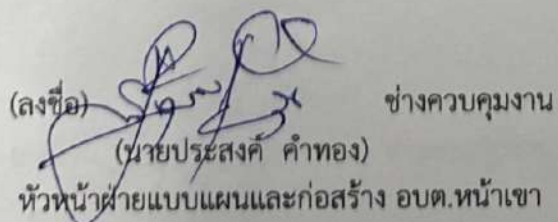 (ลงชื่อ) ช่างควบคุมงาน
(นายประสงค์ คำทอง)
หัวหน้าฝ่ายแบบแผนและก่อสร้าง อบต.หน้าเขา